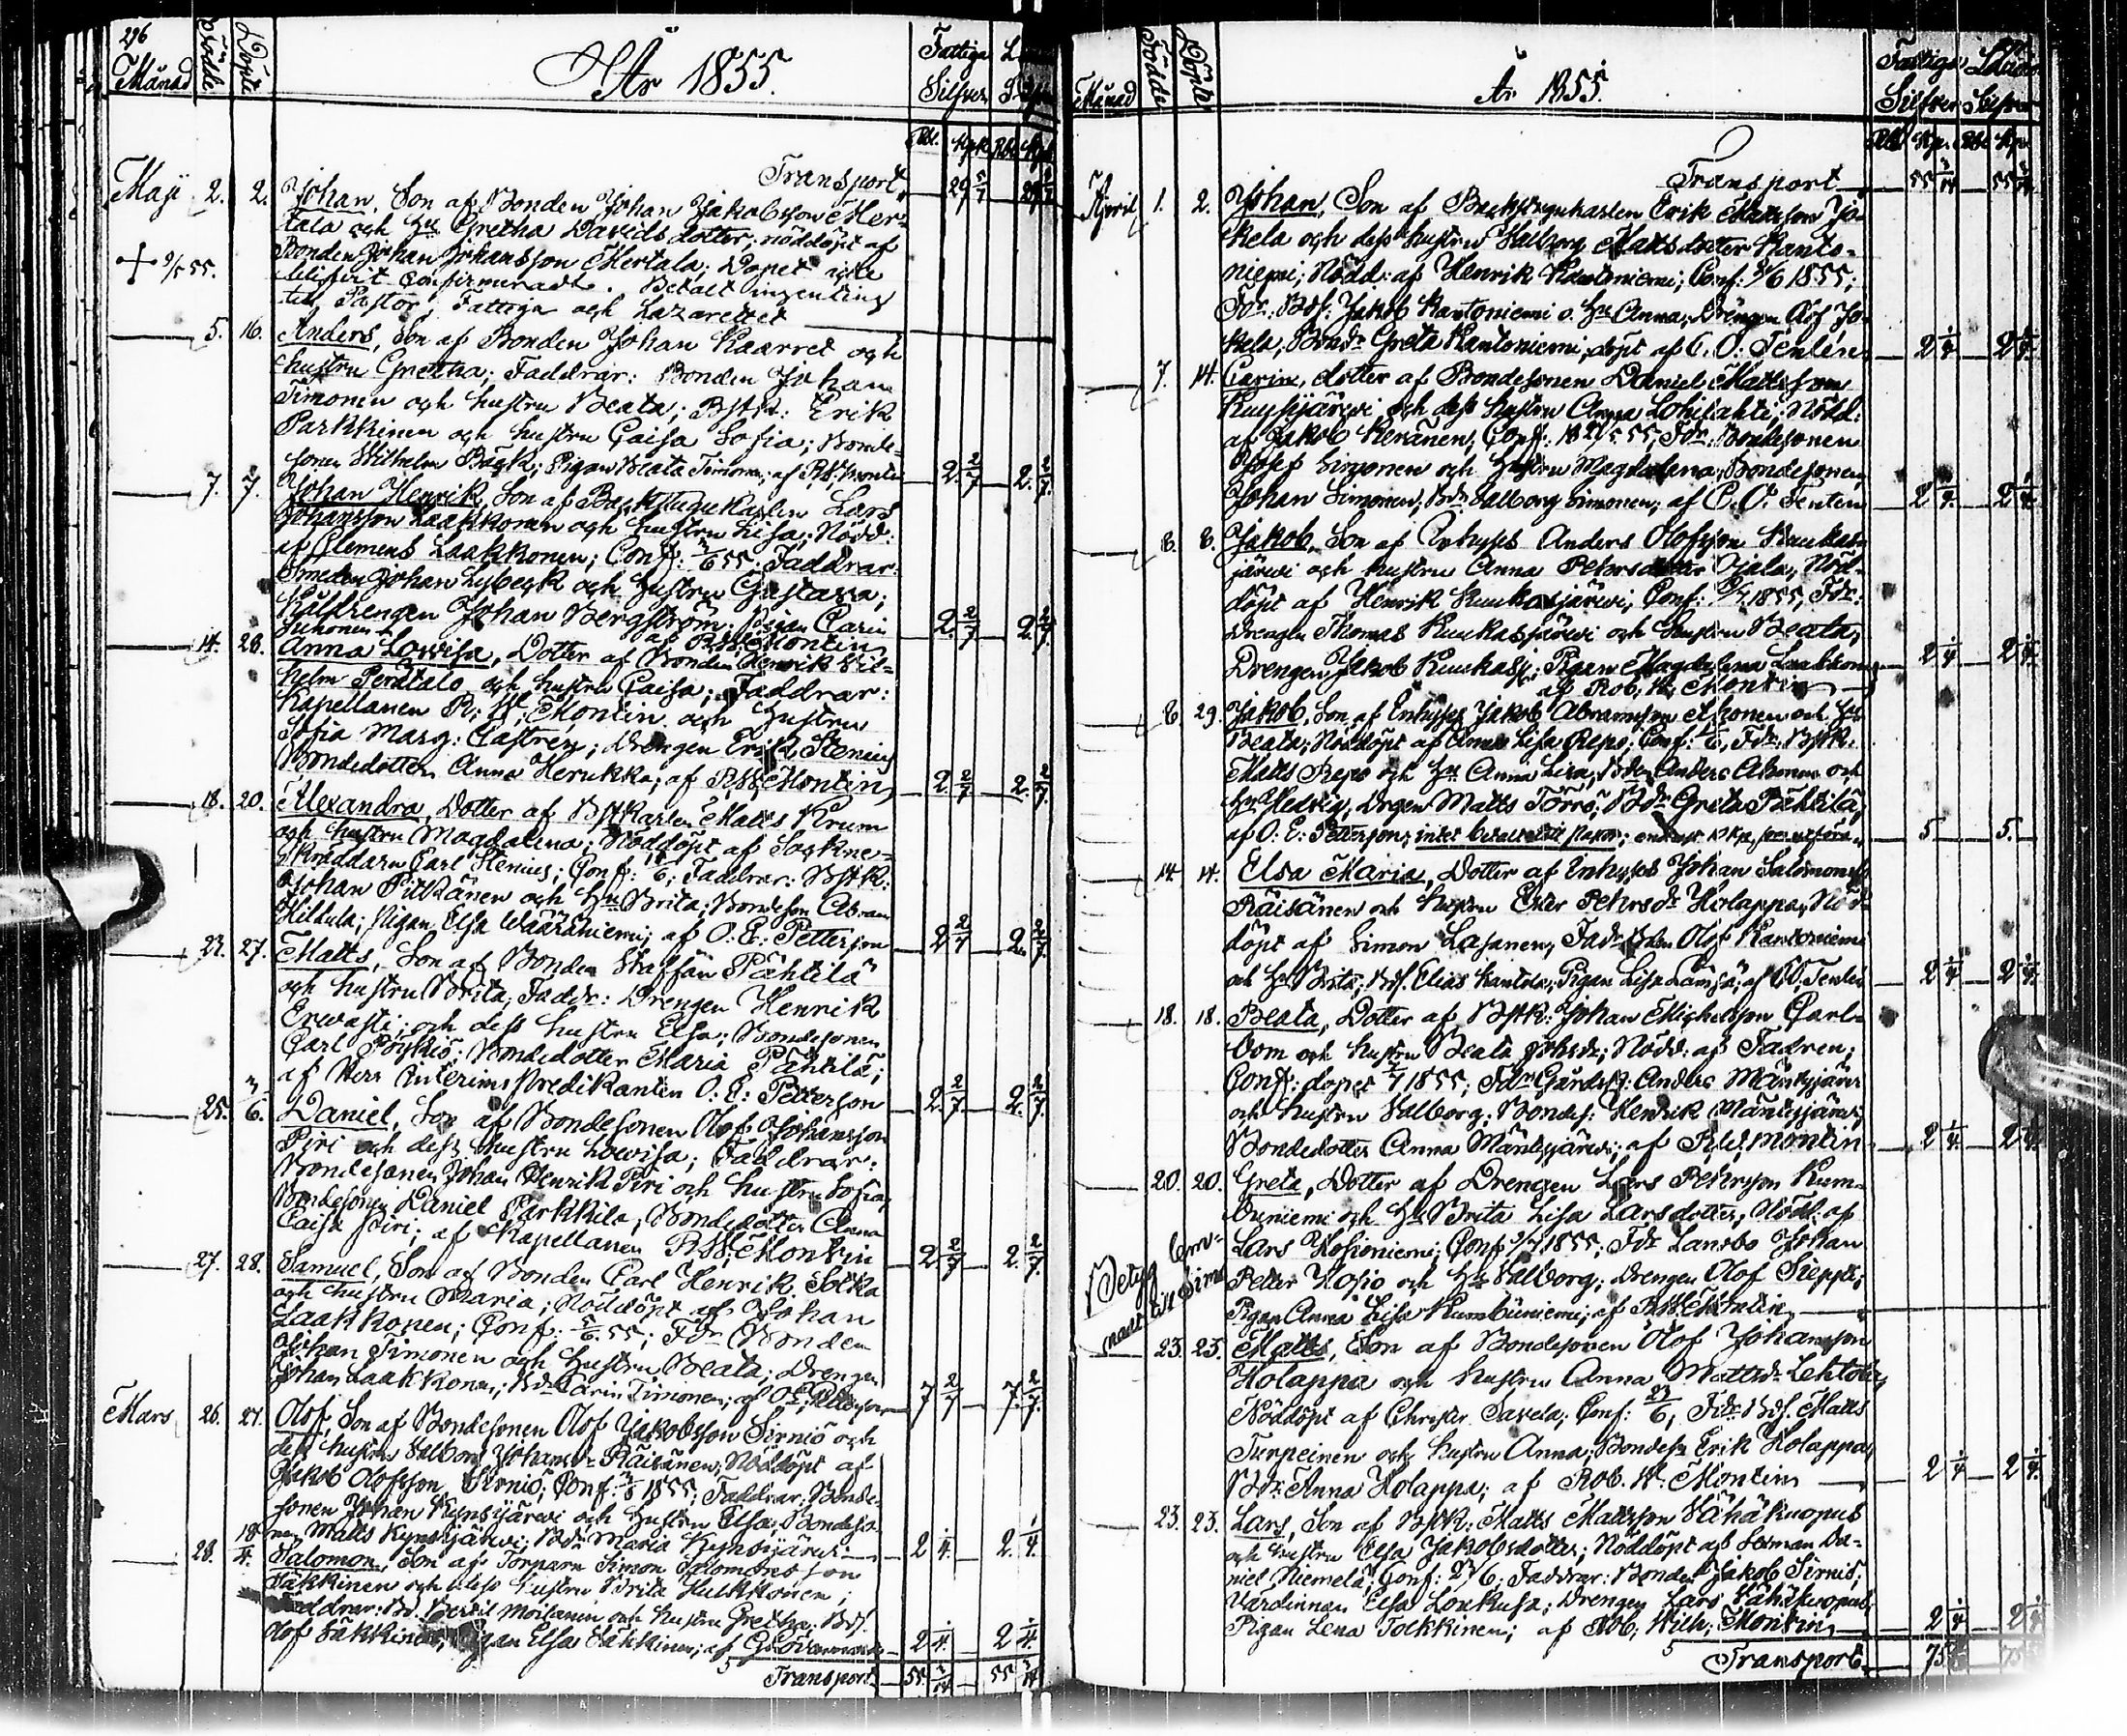 296
Månad Födde Döpte År 1855. Fattiga Silfver
Rbl. Kpk Rbl. Kpk
Transport 29 5/7 29 5/7
Maji 2. 2. Johan, Son af Bonden Johan Jakobsson Mer-
tala och Hu Gretha Davidsdotter; nöddöpt af
Bonden Johan Johansson Mertala; Dopet icke
+ 9/5 55. blifvit Confirmeradt. Betalt ingenting
till Pastor, Fattiga och Lazarettet
5. 16. Anders, Son af Bonden Johan Kaarret och
hustru Gretha; Faddrar: Bonden Johan
Timonen och hustru Beata; Erik
Parkkinen och hustru Caisa Sofia; Bonde-
sonen Wilhelm Bäck; Pigan Beata Timonen; af R.W. Montin 2 2/7 2. 2/7
7. 7. Johan Henrik, Son af Backstugukarlen Lars
Johansson Laakkonen och hustru Lisa; Nödd:
af Clemens Laakkonen; Conf: 3/6 55. Faddrar:
Smeden Johan Lybeck och hustru Gustava;
Johan Bergström; Pigan Carin
af R.W. Montin 2 2/7 2. 2/7
14. 28. Anna Lovisa, Dotter af Bonden Henrik Wil-
helm Perätalo och hustru Caisa; Faddrar:
Kapellanen R: W: Montin och hustru
Sofia Marg: Castrén; Drengen Erik Stenius
Bondedotter Anna Herukka; af R.W. Montin 2 2/7 2. 2/7
18. 20. Alexandra, Dotter af Bstkarlen Matts Krum
och hustru Magdalena; Nöddöpt af Sockne-
skräddarn Carl Stenius; Conf: Faddrar: Bstk:
Johan Pitkänen och Hu Brita; Bondeson Abram
Hiltula; Pigan Elsa Wääräniemi; af O. E: Petterson 2 2/7 2. 2/7
23. 27. Matts, Son af Bonden Staffan Pähtilä
och hustru Brita; Faddr: Drengen Henrik
Erwasti; och dess hustru Elsa; Bondesonen
Carl Pöykiö; Bondedotter Maria Pähtilä;
af Herr Interims Predikanten O. E: Petterson 2 2/7 2. 2/7
25. 3/6. Daniel, Son af Bondesonen Olof Johansson
Piri och dess hustru Lovisa; Faddrar:
Bondesonen Johan Henrik Piri och hustru Sofia;
Bondesonen Daniel Parkkila; Bondedotter Anna
Caisa Piri; af Kapellanen R.W. Montin 2 2/7 2. 2/7
27. 28. Samuel, Son af Bonden Carl Henrik Sotka
och hustru Maria; Nöddöpt af Johan
Laakkonen; Conf: 5/6. 55; Fdr Bonden
Johan Timonen och hustru Beata; Drengen
Johan Laakkonen; Bdr Carin Timonen; af O. E: Petterson 7 2/7 7. 2/7
Mars 26. 27. Olof, Son af Bondesonen Olof Jakobsson Sirniö och
dess hustru Valborg Johansdr Räisänen; Nöddöpt af
Jakob Olofsson Sirniö; Conf: 1855; Faddrar: Bonde-
sonen Johan Kynsijärvi och hustru Elsa; Bondeso-
nen Matts Kynsijärvi; Bdr Maria Kynsijärvi 2 1/4 2. 1/4
28. 18/4. Salomon, Son af Torparn Simon Salomonsson
Säkkinen och dess hustru Brita Hulkkonen;
Faddrar: Bd. Bertil Moilanen och hustru Gretha; Bdf.
Olof Säkkinen; Pigan Elsa Säkkinen; af 2 1/4. 2 1/4.
Transport 55 3/14 55 3/14
Månad Födde Döpte År 1855. Fattiga Silfver Silfver
Rbl Kpk Rbl Kpk
Transport 55 3/14 55 3/14
April 1. 2. Johan, Son af Backstugukarlen Erik Mattsson Jo-
kela och dess hustru Valborg Mattsdotter Kanto-
niemi; Nödd: af Henrik Kantoniemi; Conf: 1855;
Fdr. Bdf: Jakob Kantoniemi o. Hu Anna; Drängen Jo-
kela, Bondr Greta Kantoniemi, döpt af C. O. Tenlén 2 1/4 2 1/4
7. 14. Carin, dotter af Bondesonen Daniel Mattsson
och dess hustru Anna Lohilahti; Nödd:
af Jakob Keränen; Conf: 27/5 55; Fdr: Bondesonen
Josef Simonen och hustru Magdalena; Bondesonen
Johan Simonen; Bdr Valborg Simonen; af C. O. Tenlén 2 1/4. 2 1/4
8. 8. Jakob, Son af Inhyses Anders Olofsson Kuukas-
järvi och hustru Anna Pehrsdotter Ojala; Nöd-
döpt af Henrik Kuukasjärvi; Conf: 1855; Fdr:
Drengen Thomas Kuukasjärvi och hustru Beata;
Drengen Jakob Kuukasj: Pigan Magdalena
af Rob. W. Montin 2 1/4 2 1/4
8. 29. Jakob, Son af Inhyses Jakob Abramsson Ahonen och Hu
Beata; Nöddöpt af Anna Lisa Repo; Conf: Fdr. Bstk.
Matts Repo och Hu Anna Lisa, Bden Anders Ahonen och
Hu Hedvig, Drgen Matts Törrö; Bdr Greta Pähtilä;
af O. E. Petterson; intet betalt till Pastor; 5 5.
14. 14. Elsa Maria, Dotter af Inhyses Johan Salomonss
Räisänen och hustru Ester Pehrsdr Holappa; Nöd-
döpt af Simon Lasanen; Fadr Bden Olof Kantoniemi
och Hu Brita; Bdf. Elias Kantola; Pigan Lisa Lämsä; af C. O. Tenlén 2 1/4 2 1/4
18. 18. Beata, Dotter af Bstk: Johan Michelsson Carl-
bom och hustru Beata Johsdr; Nödd: af Fadren;
Conf: dopet 1855; Fdr Gårdsf: Anders Mäntyjärvi
och hustru Valborg; Bondes: Henrik Mäntyjärvi;
Bondedotter Anna Mäntyjärvi; af R.W. Montin 2 1/4 2 1/4
20. 20. Greta, Dotter af Drengen Lars Pehrsson Kum-
buniemi och Hu Brita Lisa Larsdotter; Nödd: af
Lars Hosioniemi; Conf 1855; Fdr Lansbo Johan
Petter Hosio och Hu Valborg; Drengen Olof Sieppi;
Pigan Anna Lisa Kumbuniemi; af R.W. Montin
Betyg
till Simo
23. 23. Matts, Son af Bondesonen Olof Johansson
Holappa och hustru Anna Mattsdr Lehtola
Nöddöpt af Christer Savela; Conf: 23/6; Fdr: Bdf. Matts
Turpeinen och hustru Anna; Bondesn Erik Holappa;
Bdr: Anna Holappa; af Rob. W. Montin 2 1/4 2 1/4
23. 23. Lars, Son af Bstk: Matts Mattsson Vähäkuopus
och hustru Elsa Jakobsdotter; Nöddöpt af Da-
niel Niemelä; Conf: 2/6; Faddrar: Bonden Jakob Sirniö;
Värdinnan Elsa Loukusa; Drengen Lars Vähäkuopus;
Pigan Lena Tolkkinen; af Rob. Wilh. Montin 2 1/4 2 1/4
Transport 75